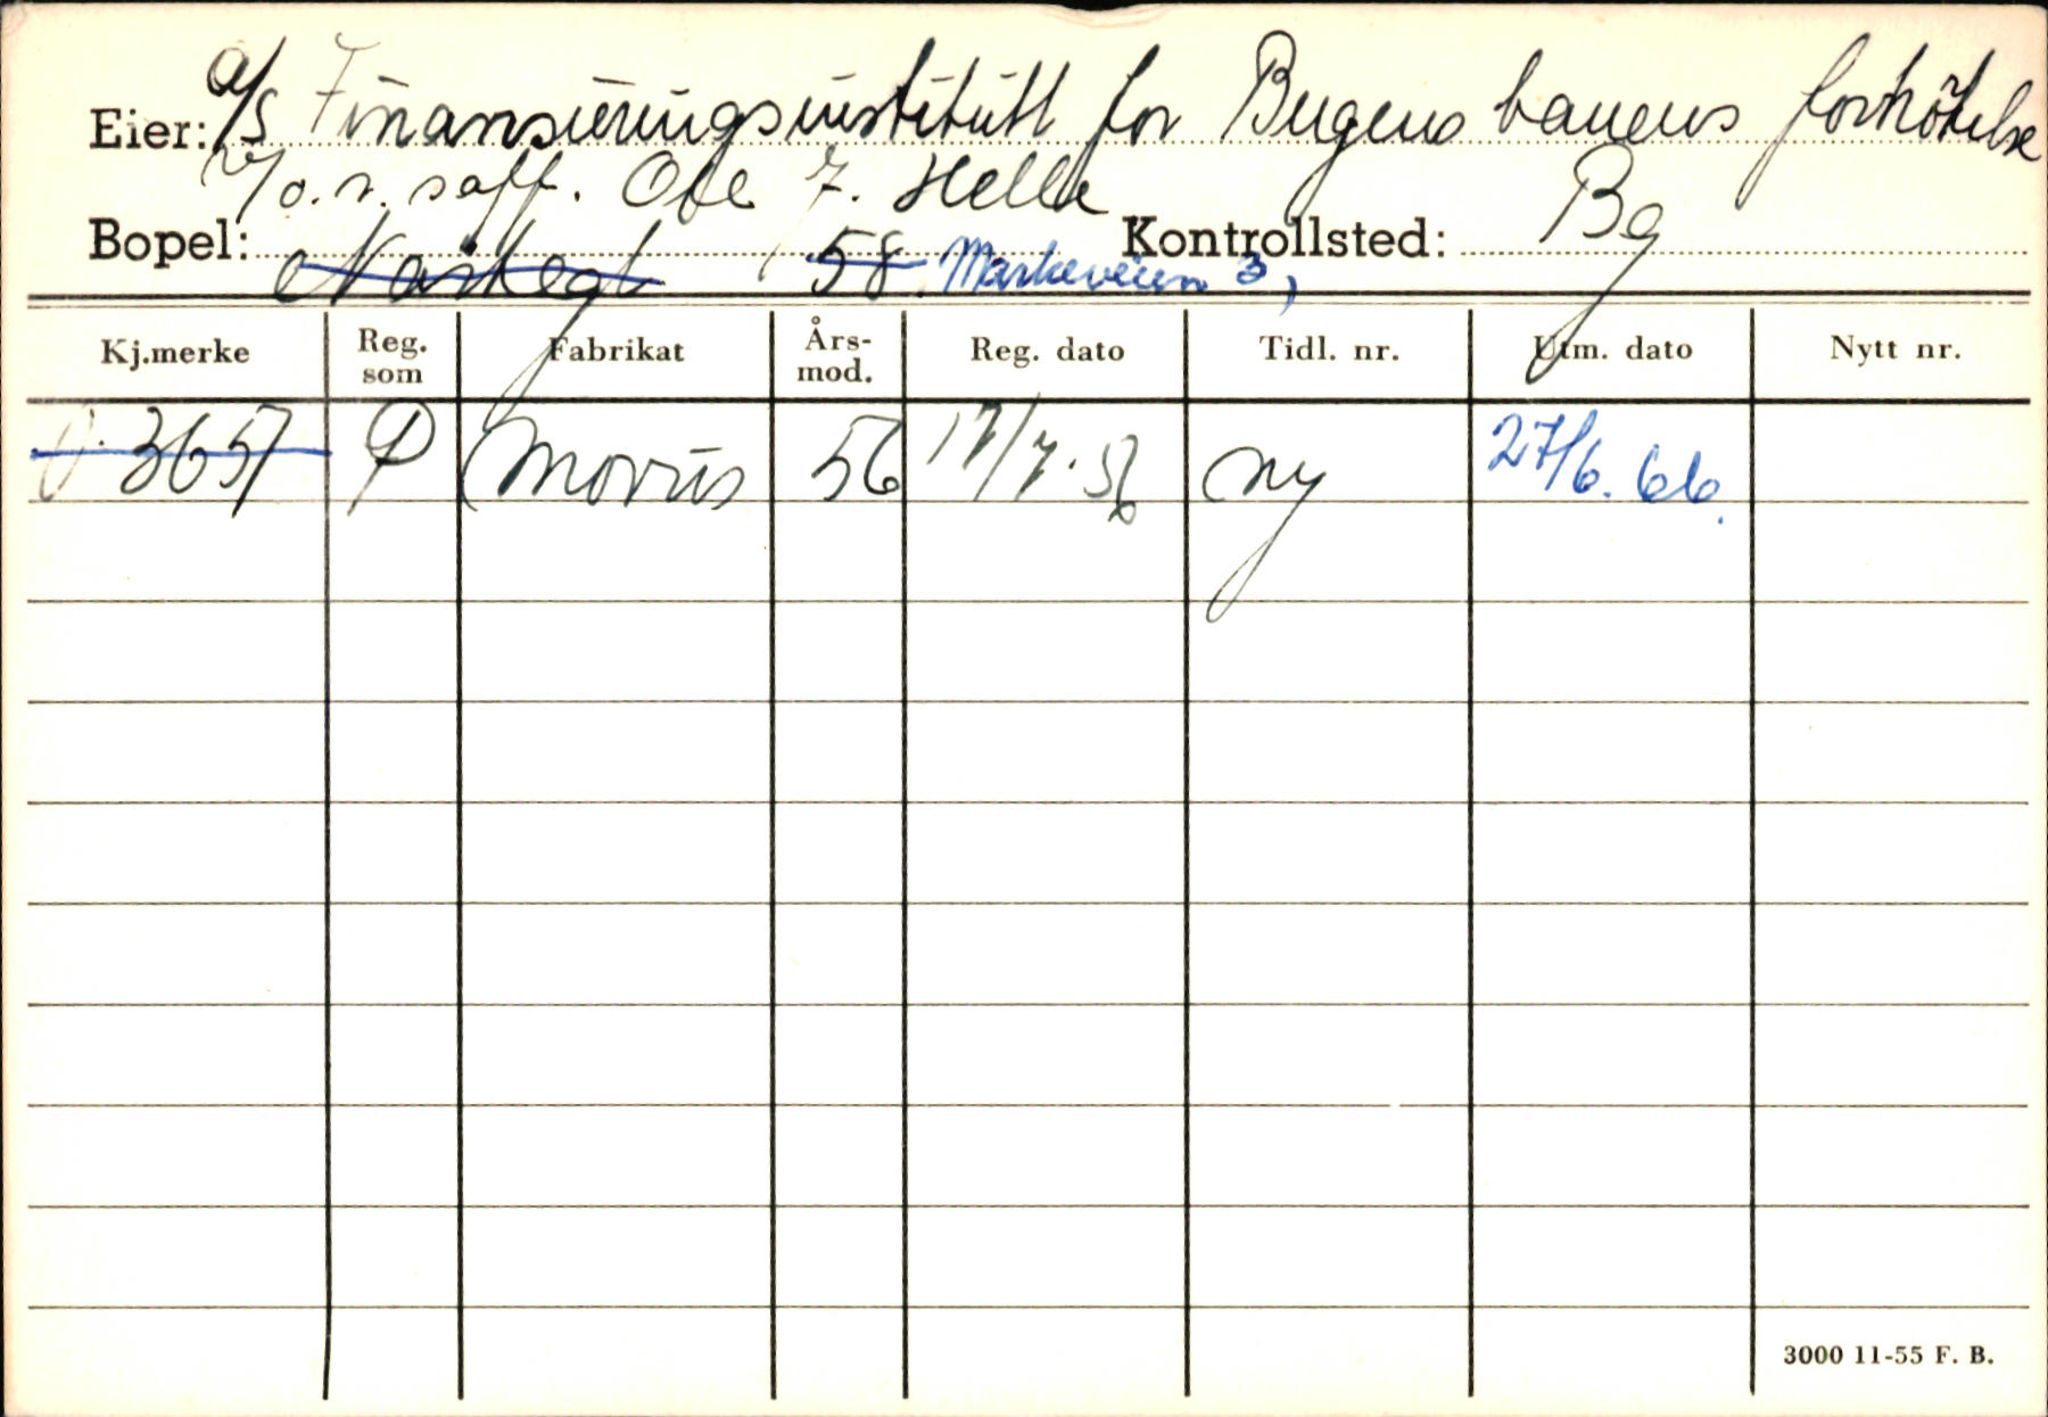 Eier: A/S Finansieringsinstitutt for Bergensbanens forkortelse
v/o.r.saff. Ole F. Helle
Bopel: Nøstegt 58. Markeveien 3, Kontrollsted: Bg
Kj.merke Reg. som Fabrikat Års-mod. Reg. dato Tidl. nr. Utm. dato Nytt nr.
O-3657 P Morris 56 17/7.56 ny 27/6.66.
3000 11-55 F. B.